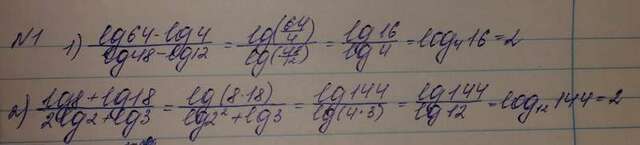 N1 1) (lg64-lg4)/(lg48-lg12) = lg(64/4)/lg(48/12) = lg16/lg4 = log₄16 = 2
2) (lg8+lg18)/(2lg2+lg3) = lg(8·18)/(lg2²+lg3) = lg144/lg(4·3) = lg144/lg12 = log₁₂144 = 2